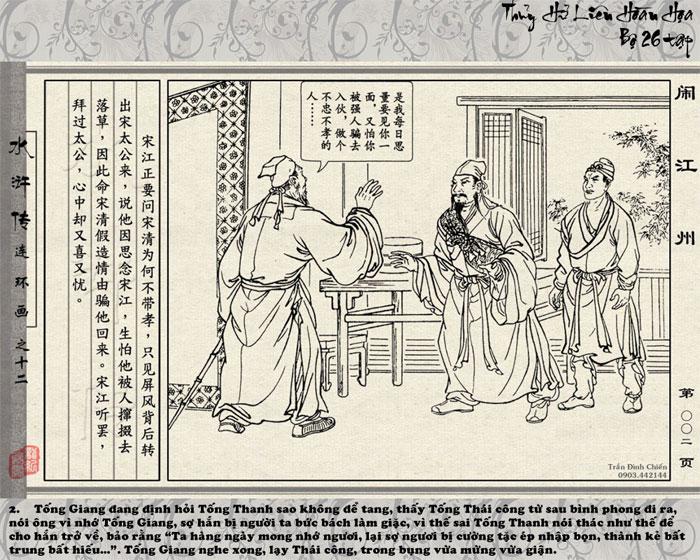 Thủy Hử Liên Hoàn Họa
Bộ 26 tập
闹江州
第〇〇二页
是我每日思
量要见你一
面，又怕你
被强人骗去
入伙，做个
不忠不孝的
人……
宋江正要问宋清为何不带孝，只见屏风背后转
出宋太公来，说他因思念宋江，生怕他被人撺掇去
落草，因此命宋清假造情由骗他回来。宋江听罢，
拜过太公，心中却又喜又忧。
水浒传连环画之十二
Trần Đình Chiến
0903.442144
2. Tống Giang đang định hỏi Tống Thanh sao không để tang, thấy Tống Thái công từ sau bình phong đi ra,
nói ông vì nhớ Tống Giang, sợ hắn bị người ta bức bách làm giặc, vì thế sai Tống Thanh nói thác như thế để
cho hắn trở về, bảo rằng “Ta hàng ngày mong nhớ ngươi, lại sợ ngươi bị cường tặc ép nhập bọn, thành kẻ bất
trung bất hiếu...”. Tống Giang nghe xong, lạy Thái công, trong bụng vừa mừng vừa giận.